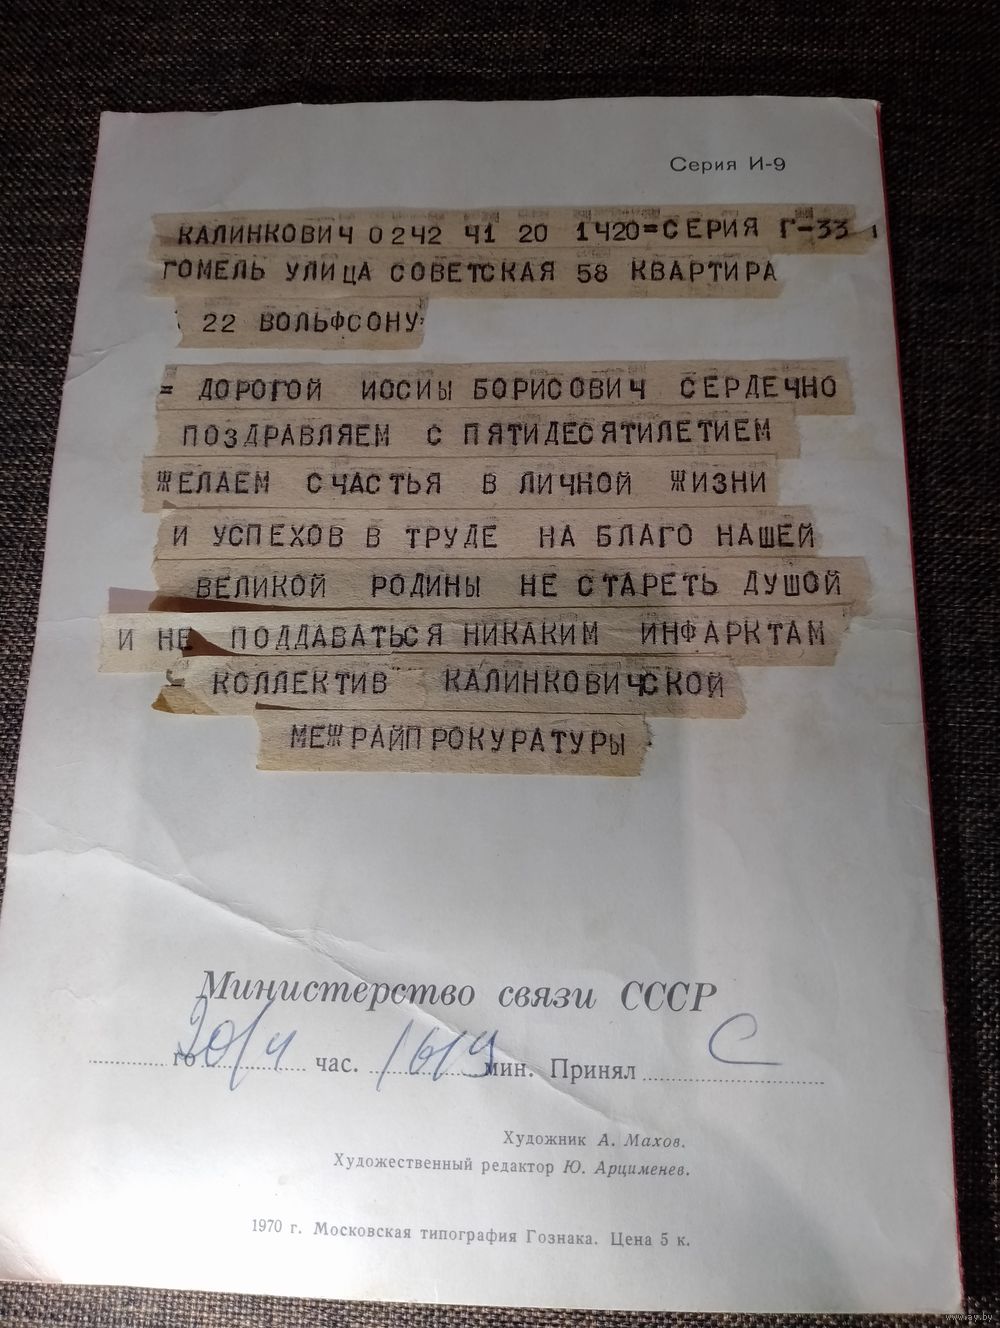 Серия И-9
КАЛИНКОВИЧ 0242 Ч1 20 1Ч20=СЕРИЯ Г-33
ГОМЕЛЬ УЛИЦА СОВЕТСКАЯ 58 КВАРТИРА
22 ВОЛЬФСОНУ
= ДОРОГОЙ ИОСИЫ БОРИСОВИЧ СЕРДЕЧНО
ПОЗДРАВЛЯЕМ С ПЯТИДЕСЯТИЛЕТИЕМ
ЖЕЛАЕМ СЧАСТЬЯ В ЛИЧНОЙ ЖИЗНИ
И УСПЕХОВ В ТРУДЕ НА БЛАГО НАШЕЙ
ВЕЛИКОЙ РОДИНЫ НЕ СТАРЕТЬ ДУШОЙ
И НЕ ПОДДАВАТЬСЯ НИКАКИМ ИНФАРКТАМ
- КОЛЛЕКТИВ КАЛИНКОВИЧСКОЙ
МЕЖРАЙПРОКУРАТУРЫ
Министерство связи СССР
го 20/4 час. мин. Принял С
Художник А. Махов.
Художественный редактор Ю. Арцименев.
1970 г. Московская типография Гознака. Цена 5 к.
www.ay.by